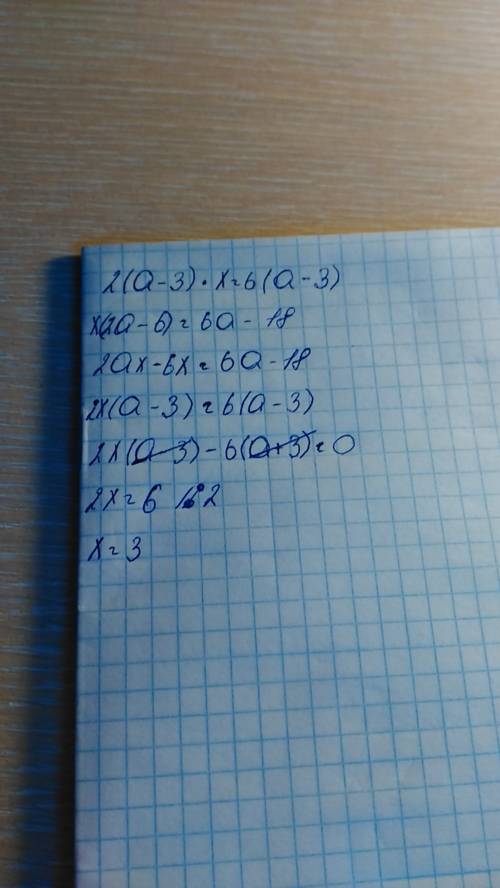 2(a-3)·x=6(a-3)
x(2a-6)=6a-18
2ax-6x=6a-18
2x(a-3)=6(a-3)
2x(a-3)-6(a+3)=0
2x=6 /:2
x=3